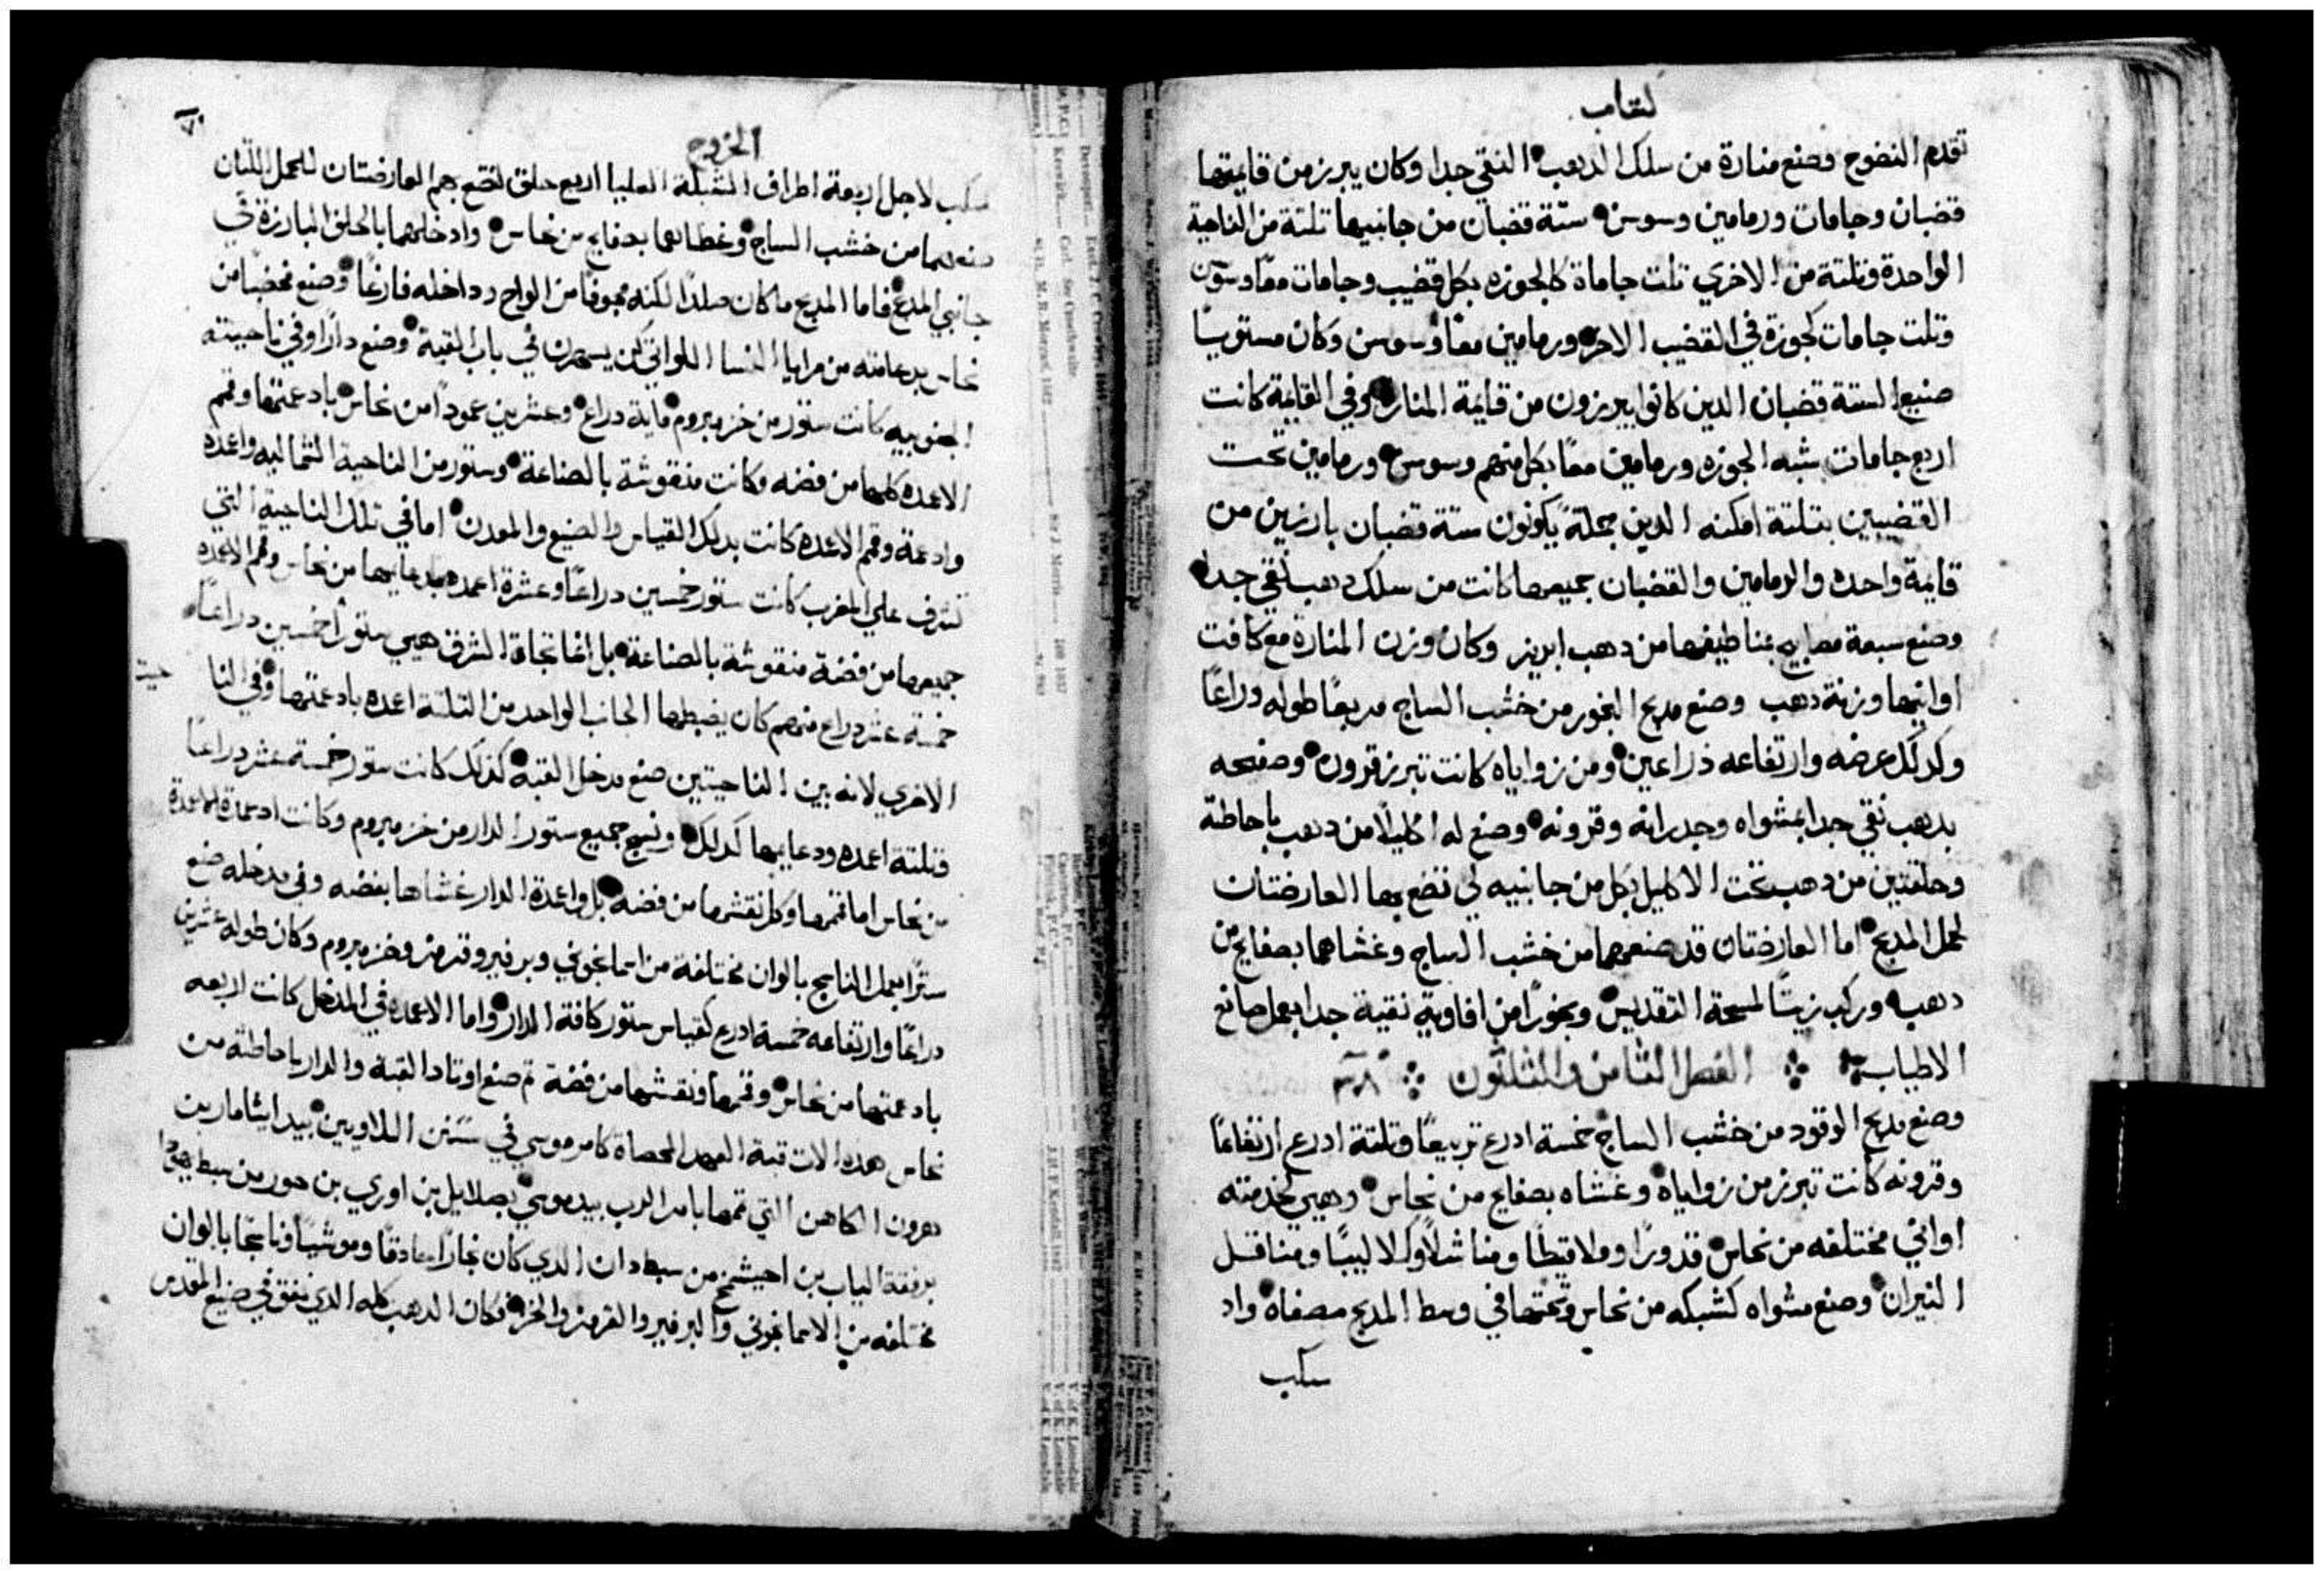 كتاب
تقدم النضوح وصنع منارة من سلك الدهب النقي جدا وكان يبرز من قايمتها
قضبان وجامات ورمامين وسوسن ستة قضبان من جانبيها تلتة من الناحية
الواحدة وتلتة من الاخري تلت جاماة كالجوزه بكل قضيب وجامات معًا وسوسن
وتلت جامات كجوزة في القضيب الاخر ورمامين معًا وسوسن وكان مستويًا
صنيع الستة قضبان الدين كانوا يبرزون من قايمة المنار وفي القايمة كانت
اربع جامات بشبه الجوزه ورمامين معًا بكل منهم وسوسن ورمامين تحت
القضيبين بتلتة امكنه الدين جملةً يكونون ستة قضبان بارزين من
قايمة واحده والرمامين والقضبان جميعها كانت من سلك دهب نقي جدا
وصنع سبعة مصابيح بمناطيفها من دهب ابريز وكان وزن المنارة مع كافت
اوانيها وزنة دهب وصنع مدبح البخور من خشب الساج مربعًا طوله دراعًا
وكدلك عرضه وارتفاعه ذراعين ومن زواياه كانت تبرز قرون وصفحه
بدهب نقي جدا بمشواه وجدرانه وقرونه وصنع له اكليلًا من دهب باحاطة
وحلقتين من دهب تحت الاكليل بكل من جانبيه لي تضع بها العارضتان
لحمل المدبح اما العارضتان قد صنعهما من خشب الساج وغشاهما بصفايح من
دهب وركب زيتًا لمسحة التقديس وبخورًا من افاوية نقية جدا بعمل صانع
الاطياب الفصل التامن والتلتون ٣٨
وصنع مدبح الوقود من خشب الساج خمسة ادرع تربيعًا وتلتة ادرع ارتفاعًا
وقرونه كانت تبرز من زواياه وغشاه بصفايح من نحاس وهيي لخدمته
اواني مختلفه من نحاس قدورًا وملاقيطًا ومناشلًا وكلاليبًا ومناقل
النيران وصنع مشواه كشبكه من نحاس وتحتها في وسط المدبح مصفاه واد
سكب
الخروج
٧٠
سكب لاجل اربعة اطراف الشبكة العليا اربع حلق لتضع بهم العارضتان للحمل اللتان
صنعهما من خشب الساج وغطاهما بصفايح من نحاس وادخلهما بالحلق البارزة في
جانبي المدبح فاما المدبح ما كان صلدًا لكنه مجوفًا من الواح وداخله فارغًا وصنع مخضبًا من
نحاس بدعامته من مرايا النسا اللواتي كن يسهرن في باب القبة وصنع دارًا وفي ناحيته
الجنوبيه كانت ستور من خز مبروم ماية دراع وعشرين عمودًا من نحاس بادعمتها وقمم
الاعمده كلها من فضه وكانت منقوشة بالصناعة وستور من الناحية الشماليه واعمده
وادعمة وقمم الاعمده كانت بدلك القياس والصنيع والمعدن اما في تلك الناحية التي
تشرف علي المغرب كانت ستور خمسين دراعًا وعشرة اعمده بدعايمها من نحاس وقمم الاعمده
جميعها من فضة منقوشة بالصناعة بل انما تجاة الشرق هيي ستورًا خمسين دراعًا
خمسة عشر دراع منهم كان يضبطها الجانب الواحد من التلتة اعمده بادعمتها وفي النا
حيت
الاخري لانه بين الناحيتين صنع مدخل القبة كذلك كانت ستور خمسة عشر دراعًا
وتلتة اعمده ودعايمها كدلك ونسج جميع ستور الدار من خز مبروم وكانت ادعمة الاعمدة
من نحاس اما قممها وكل نقشها من فضه بل واعمدة الدار غشاها بفضه وفي مدخله صنع
سترًا بعمل الناسج بالوان مختلفة من اسمانجوني وبرفير وقرمز وخز مبروم وكان طوله عشرين
دراعًا وارتفاعه خمسة ادرع كقياس ستور كافة الدار واما الاعمده في المدخل كانت اربعه
بادعمتها من نحاس وقممها ونقشها من فضة تم صنع اوتاد القبة والدار باحاطة من
نحاس هده الات قبة العهد المحصاة كامر موسي في سنن اللاويين بيد ايثامار بن
هرون الكاهن التي تمها بامر الرب بيد موسي بصلاييل بن اوري بن حور من سبط يهودا
برفقة الياب بن احيشمخ من سبط دان الدي كان نجارًا حادقًا وموشيًا وناسجًا بالوان
مختلفه من الاسمانجوني والبرفير والقرمز والخز فكان الدهب كله الدي نفق في صنيع المقدس